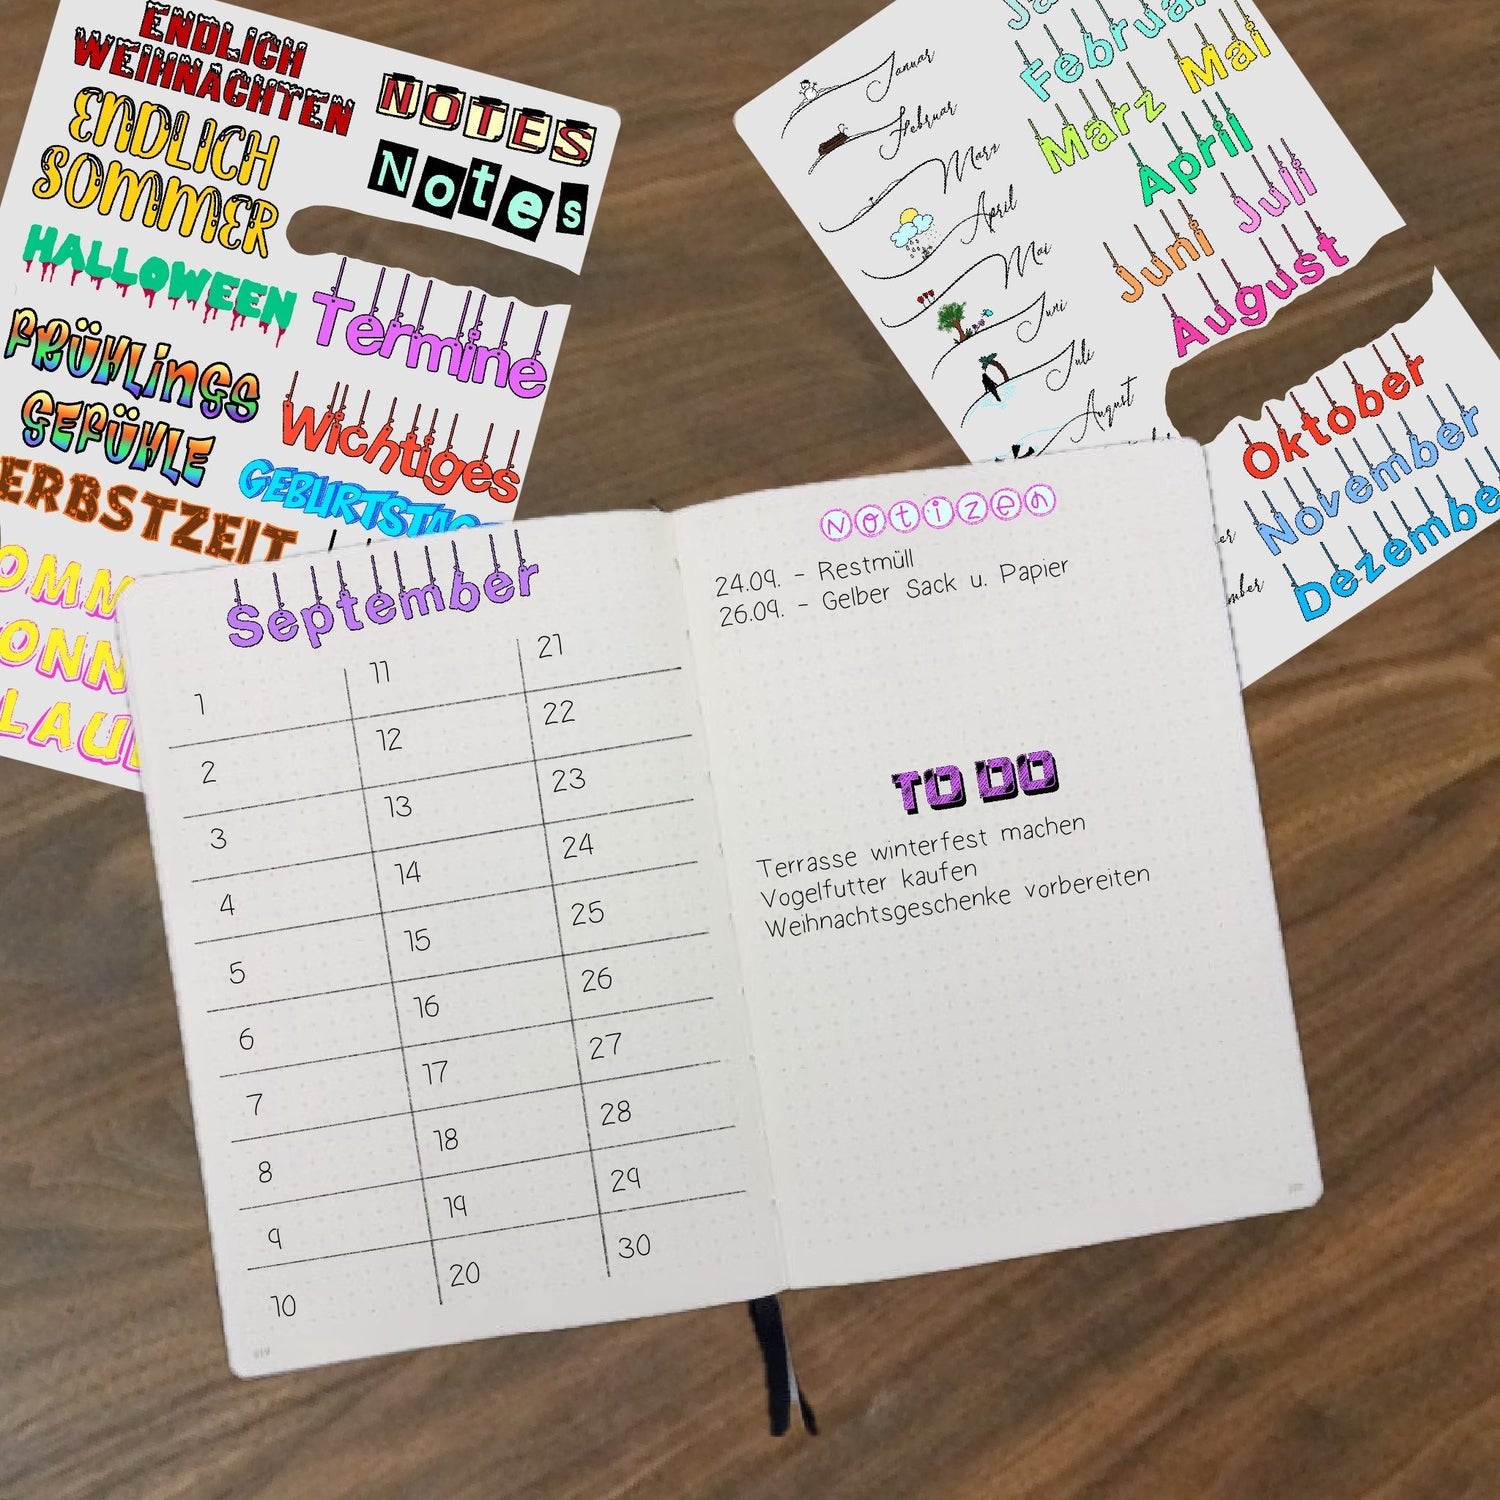 ENDLICH
WEIHNACHTEN
ENDLICH
SOMMER
HALLOWEEN
FRÜHLINGS
GEFÜHLE
NOTES
Notes
Termine
Wichtiges
Januar
Februar
März
April
Mai
Juni
Juli
August
Februar
März
Mai
April
Juni
Juli
August
Oktober
November
Dezember
September
1
2
3
4
5
6
7
8
9
10
11
12
13
14
15
16
17
18
19
20
21
22
23
24
25
26
27
28
29
30
Notizen
24.09. - Restmüll
26.09. - Gelber Sack u. Papier
TO DO
Terrasse winterfest machen
Vogelfutter kaufen
Weihnachtsgeschenke vorbereiten